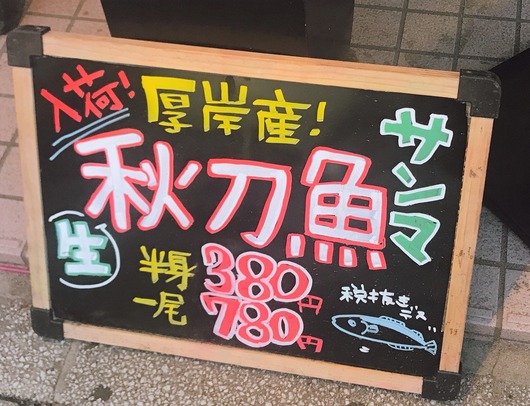 入荷! 厚岸産!
秋刀魚
サンマ
生
半身 380円
一尾 780円
税抜きデス